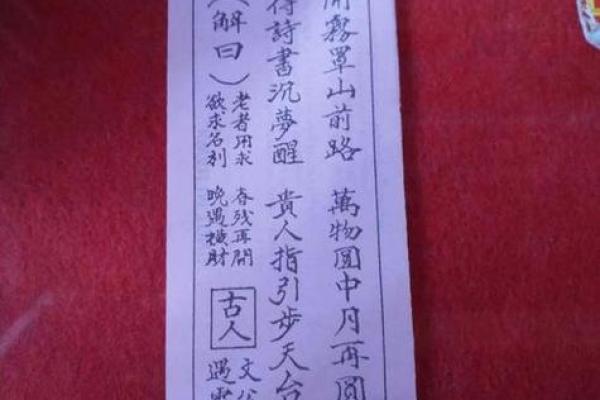 霧罩山前路 萬物圓中月再圓
待詩書沉夢醒 貴人指引步天台
（解曰）
老者用求 春残再開
欲求名利 晚遇横財
古人
文公
遇